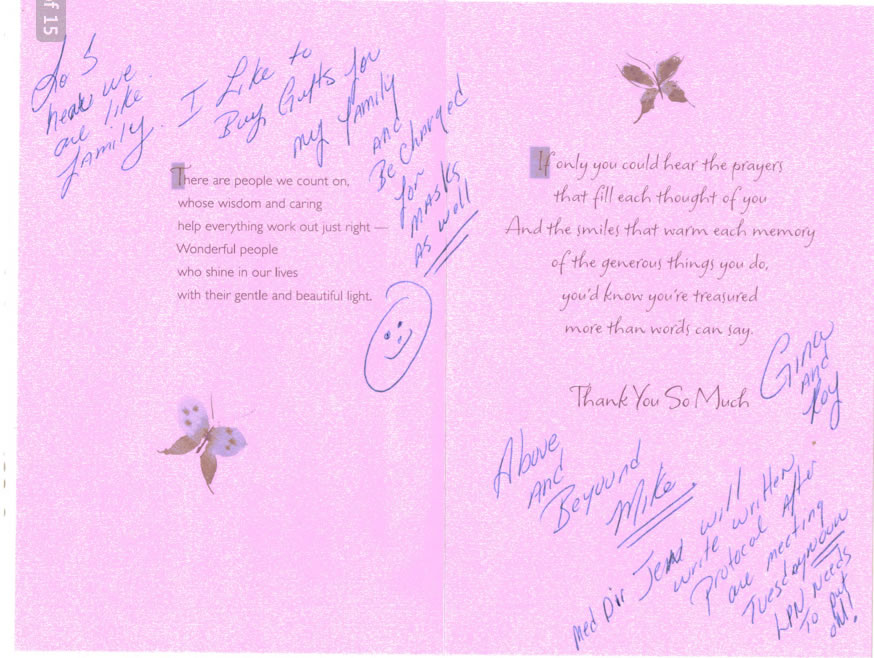 of 15
we
are like
family.
I Like to
Buy Gifts for
my family
and
Be Charged
for
masks
as well
There are people we count on,
whose wisdom and caring
help everything work out just right —
Wonderful people
who shine in our lives
with their gentle and beautiful light.
If only you could hear the prayers
that fill each thought of you
And the smiles that warm each memory
of the generous things you do,
you'd know you're treasured
more than words can say.
Thank You So Much
and
Roy
Above
And
Beyound
Mike
Med Dir will
write written
Protocol After
are meeting
Tuesday
LPN Needs
To put
out!